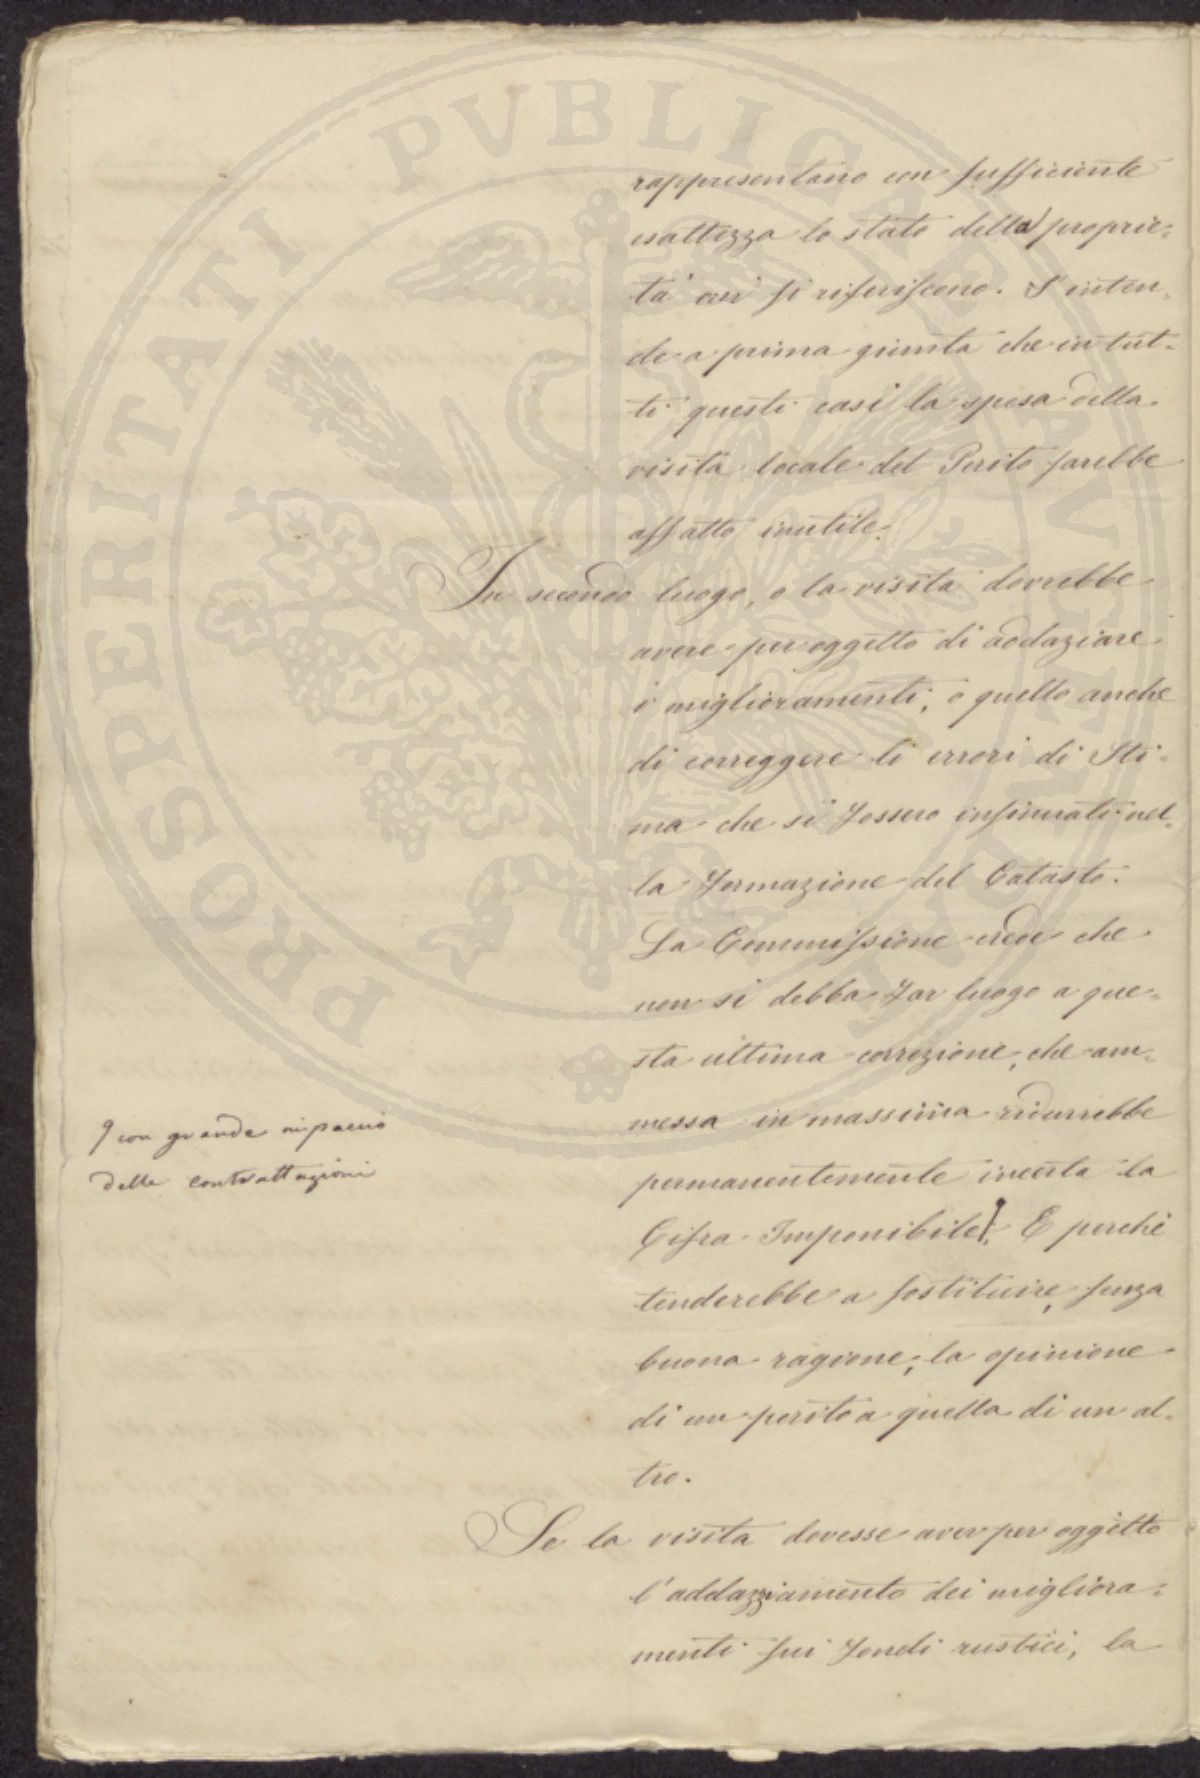 rappresentano con sufficiente
esattezza lo stato della proprie=
tà cui si riferiscono. S'inten=
de a prima giunta che in tut=
ti questi casi la spesa della
visita locale del Perito sarebbe
affatto inutile.
In secondo luogo, o la visita dovrebbe
avere per oggetto di addaziare
i miglioramenti; o quello anche
di correggere li errori di Sti=
ma che si fossero insinuati nel=
la formazione del Catasto.
La Commissione crede che
non si debba far luogo a que=
sta ultima correzione, che am=
messa in massima ridurrebbe
permanentemente incerta la
Cifra Imponibile. E perchè
tenderebbe a sostituire, senza
buona ragione, la opinione
di un perito a quella di un al=
tro.
Se la visita dovesse aver per oggetto
l'addazziamento dei migliora=
menti sui fondi rustici, la
con grande impaccio
delle contrattazioni
PROSPERITATI PVBLICAE